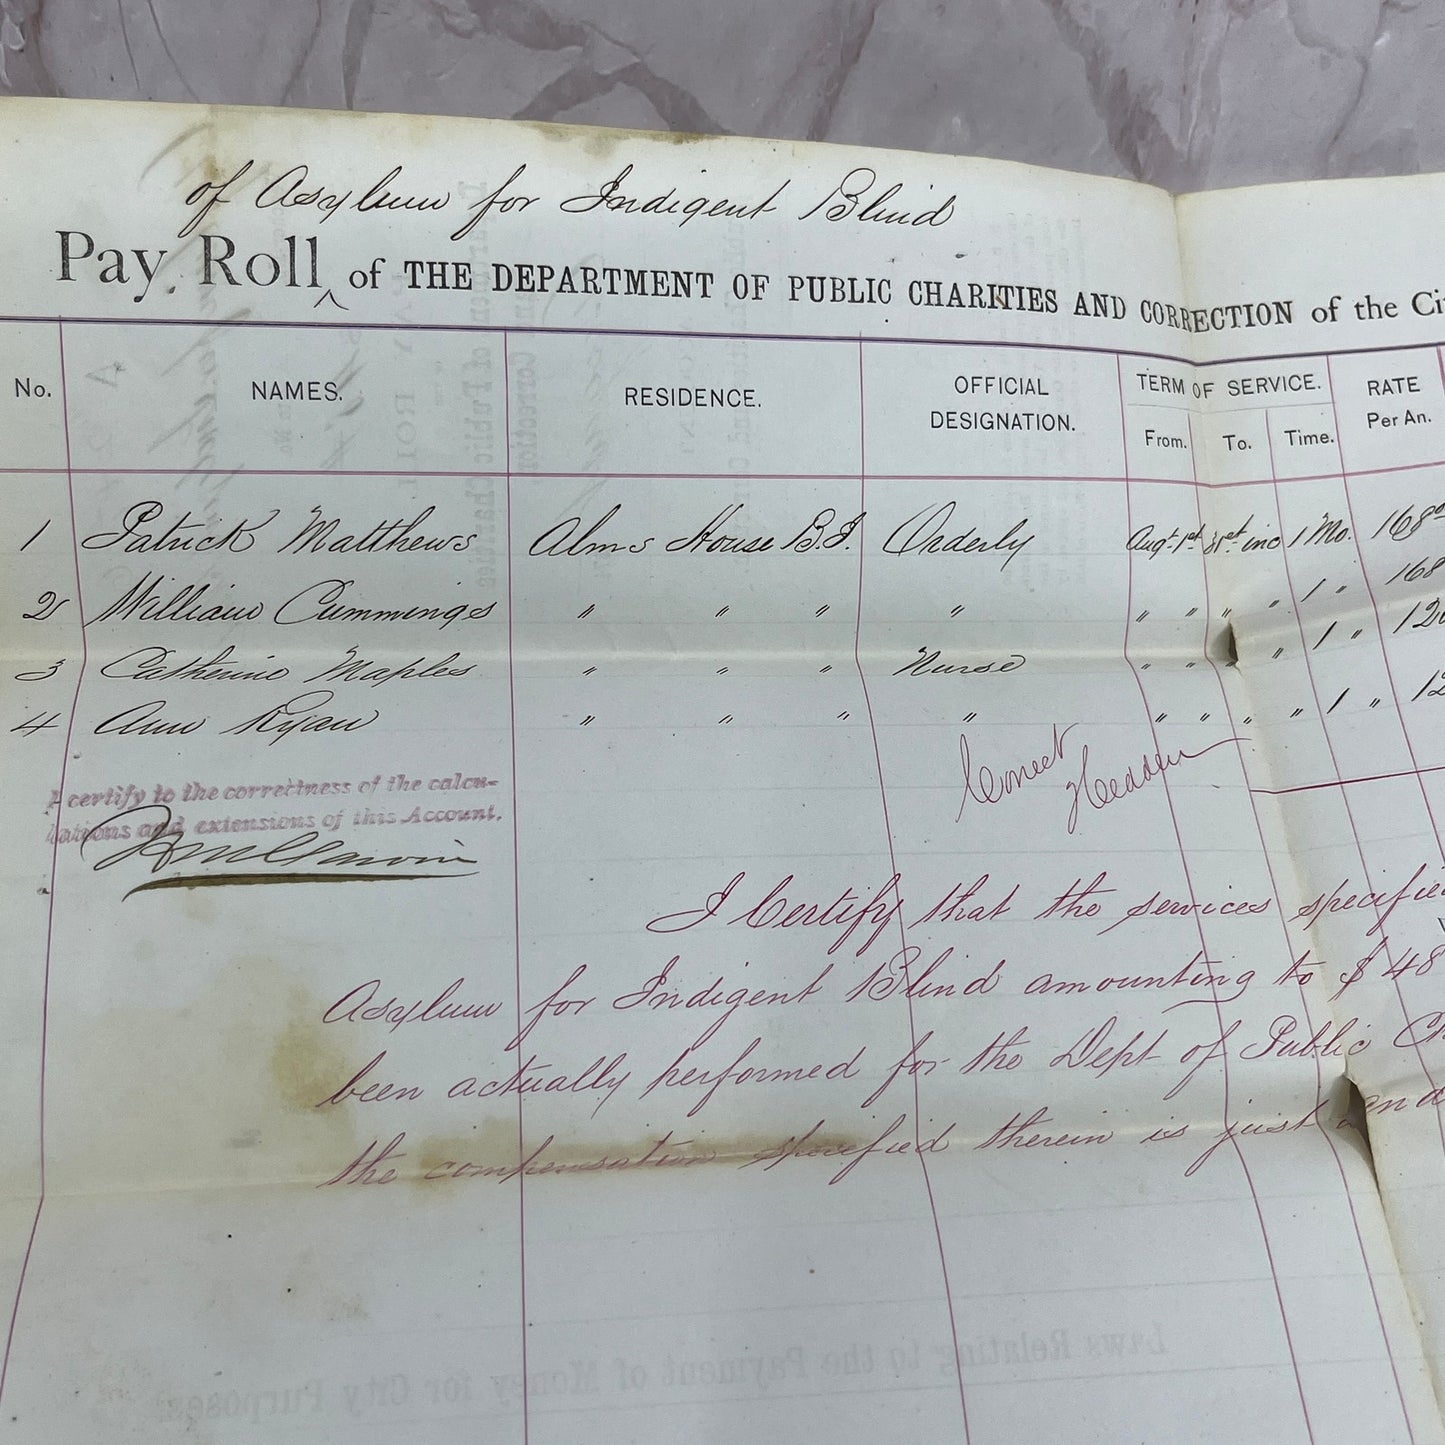 of Asylum for Indigent Blind
Pay Roll ^ of THE DEPARTMENT OF PUBLIC CHARITIES AND CORRECTION of the Ci
No. NAMES. RESIDENCE. OFFICIAL DESIGNATION. TERM OF SERVICE. From. To. Time. RATE Per An.
1 Patrick Matthews Alms House B.I. Orderly Augt. 1st 31st inc 1 Mo. 168
2 William Cummings " " " " " " " " 1 " 168
3 Catherine Maples " " " Nurse " " " " 1 " 12
4 Ann Ryan " " " " " " " " 1 " 12
Correct
I certify to the correctness of the calcu-
lations and extensions of this Account.
I Certify that the services specifie
Asylum for Indigent Blind amounting to $ 48
been actually performed for the Dept of Public Ch
the compensation specified therein is just and
Laws Relating to the Payment of Money for City Purposes